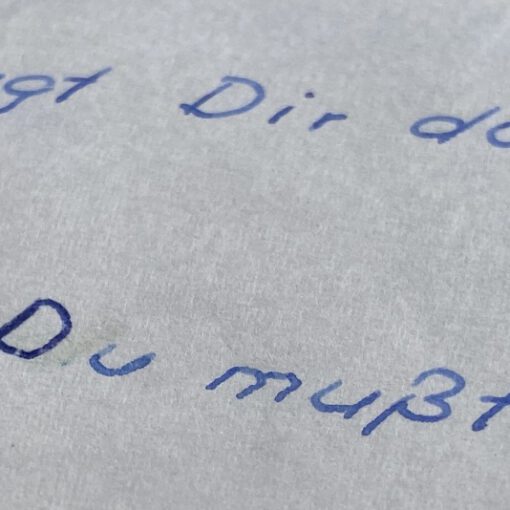 gt Dir da
Du mußt